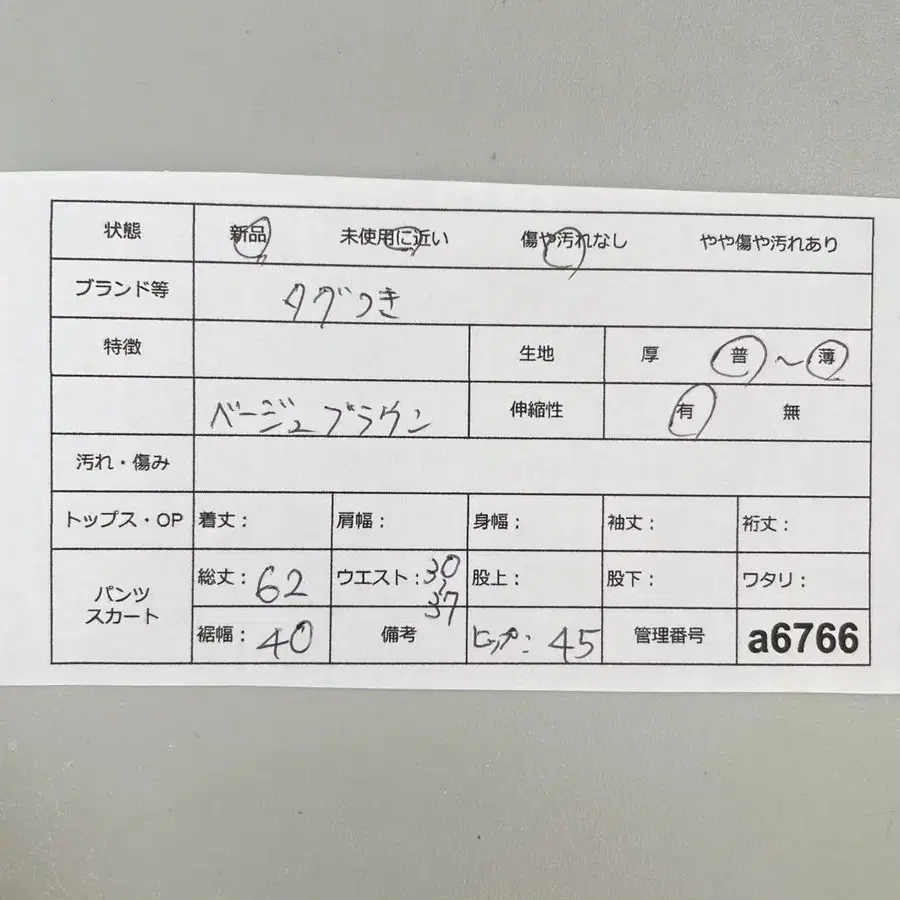 状態 新品 未使用に近い 傷や汚れなし やや傷や汚れあり
ブランド等 タグつき
特徴 生地 厚 普 〜 薄
ベージュブラウン 伸縮性 有 無
汚れ・傷み
トップス・OP 着丈: 肩幅: 身幅: 袖丈: 裄丈:
パンツ スカート 総丈: 62 ウエスト: 30 〜 37 股上: 股下: ワタリ:
裾幅: 40 備考 ヒップ: 45 管理番号 a6766